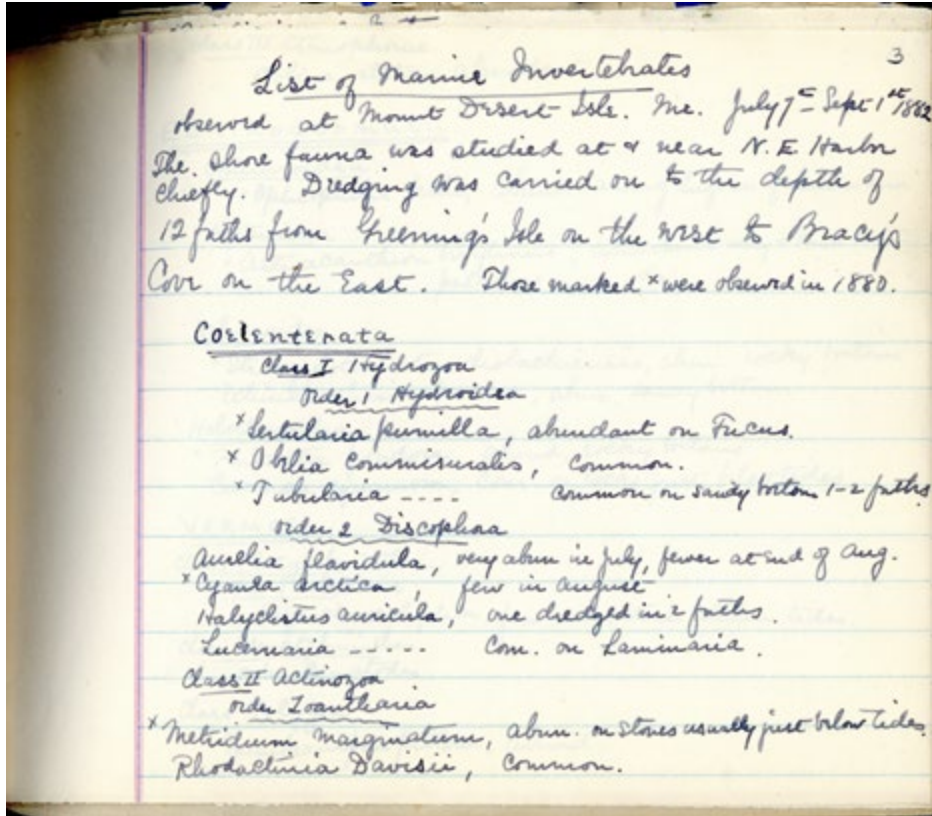 3
List of Marine Invertebrates
observed at Mount Desert Isle. Me. July 7th - Sept 1st 1882
The shore fauna was studied at & near N. E. Harbor
chiefly. Dredging was carried on to the depth of
12 faths from Greening's Isle on the west to Bracy's
Cove on the East. Those marked x were observed in 1880.
Coelenterata
Class I Hydrozoa
Order 1 Hydroidea
x Sertularia pumilla, abundant on Fucus.
x Obelia commisuralis, common.
x Tubularia ---- common on sandy bottom 1-2 faths.
Order 2 Discophora
Aurelia flavidula, very abun in July, fewer at end of Aug.
x Cyanea arctica, few in August
Halyclistus auricula, one dredged in 2 faths.
Lucernaria ----- Com. on Laminaria.
Class II Actinozoa
Order Zoantharia
x Metridium marginatum, abun. on stones usually just below tides.
Rhodactinia Davisii, common.